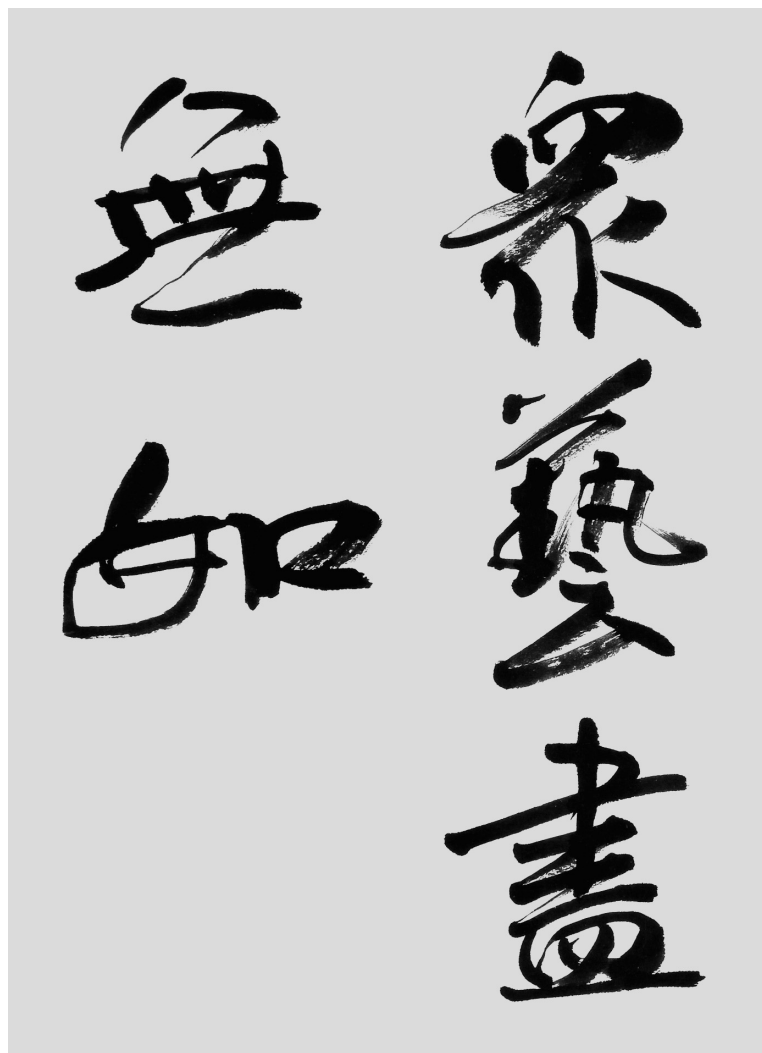 衆藝盡
無如